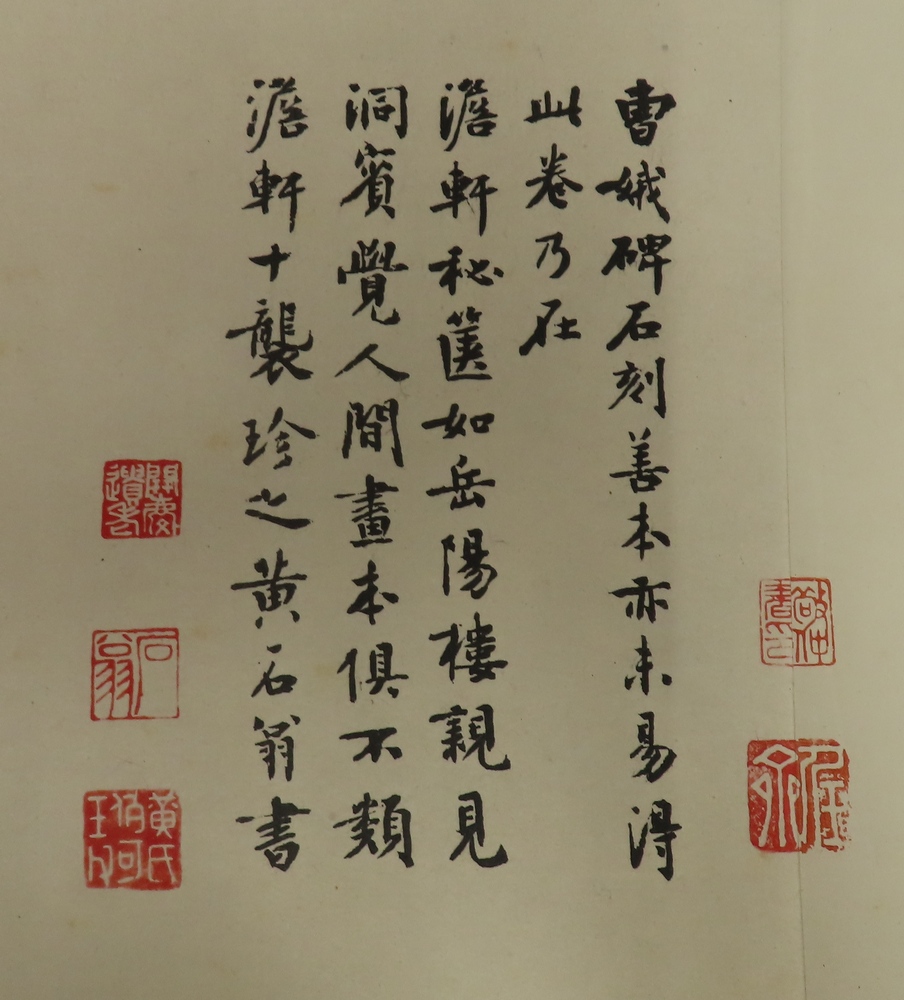 曹娥碑石刻善本亦未易得
此卷乃在
澹軒秘篋如岳陽樓親見
洞賓覺人間畫本俱不類
澹軒十襲珍之黃石翁書
石翁
黃氏伯可